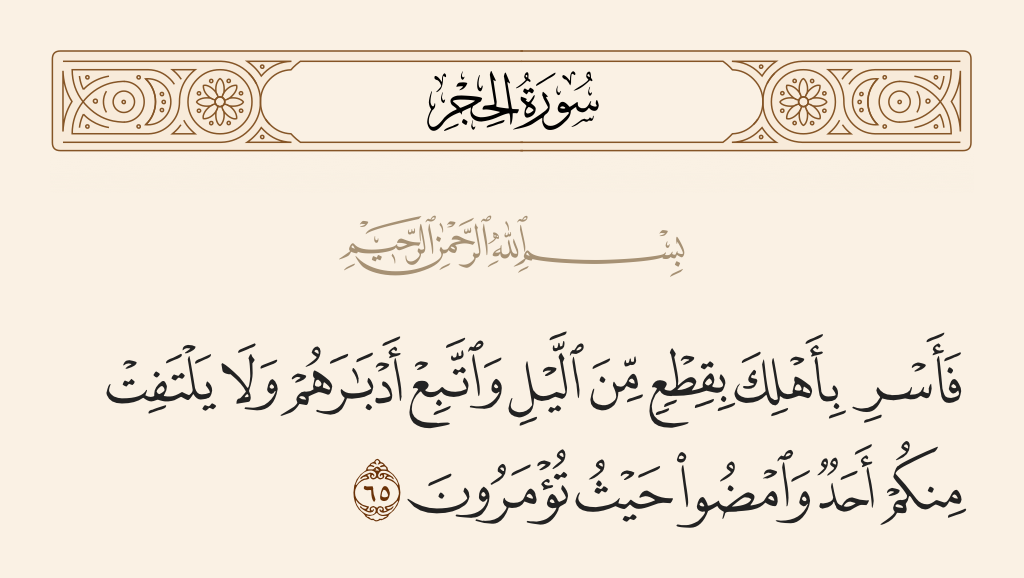 سُورَةُ الحِجْرِ
بِسْمِ ٱللَّهِ ٱلرَّحْمَٰنِ ٱلرَّحِيمِ
فَأَسْرِ بِأَهْلِكَ بِقِطْعٍ مِّنَ ٱلَّيْلِ وَٱتَّبِعْ أَدْبَـٰرَهُمْ وَلَا يَلْتَفِتْ
مِنكُمْ أَحَدٌ وَٱمْضُوا۟ حَيْثُ تُؤْمَرُونَ ٦٥